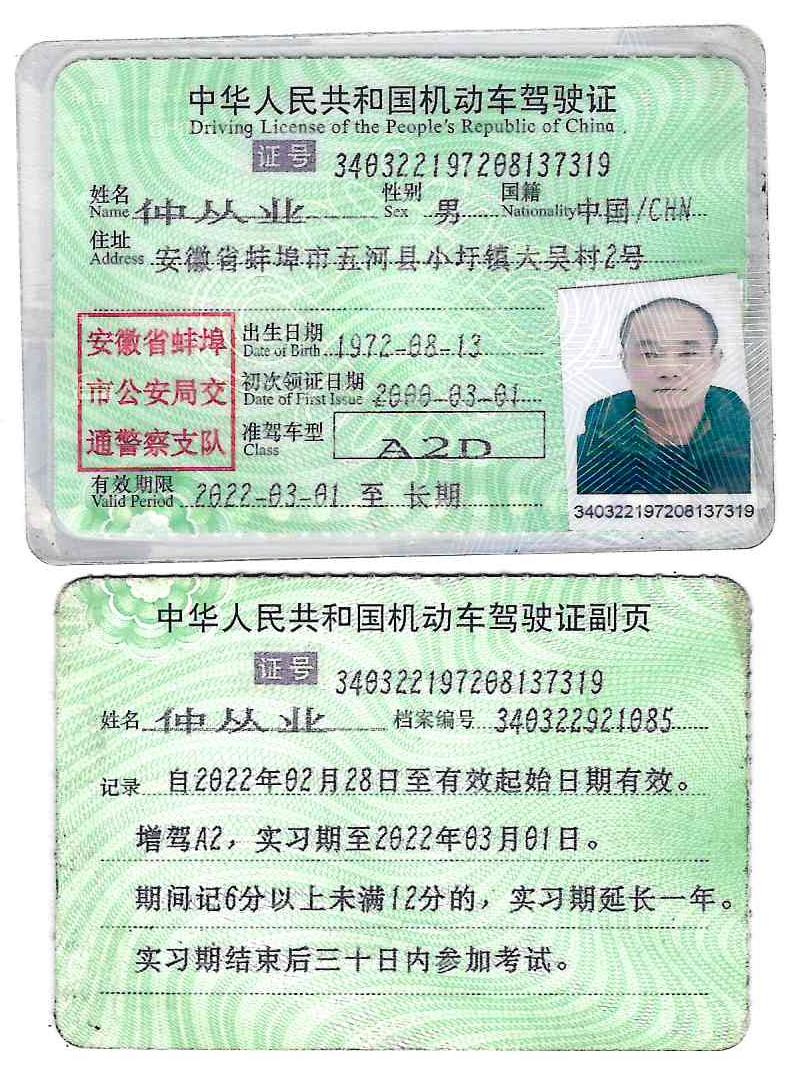 中华人民共和国机动车驾驶证
Driving License of the People's Republic of China
证号 340322197208137319
姓名 Name 仲丛业 性别 Sex 男 国籍 Nationality 中国/CHN
住址 Address 安徽省蚌埠市五河县小圩镇大吴村2号
安徽省蚌埠
市公安局交
通警察支队
出生日期 Date of Birth 1972-08-13
初次领证日期 Date of First Issue 2000-03-01
准驾车型 Class A2D
有效期限 Valid Period 2022-03-01 至 长期
340322197208137319
中华人民共和国机动车驾驶证副页
证号 340322197208137319
姓名 仲丛业 档案编号 340322921085
记录 自2022年02月28日至有效起始日期有效。
增驾A2，实习期至2022年03月01日。
期间记6分以上未满12分的，实习期延长一年。
实习期结束后三十日内参加考试。